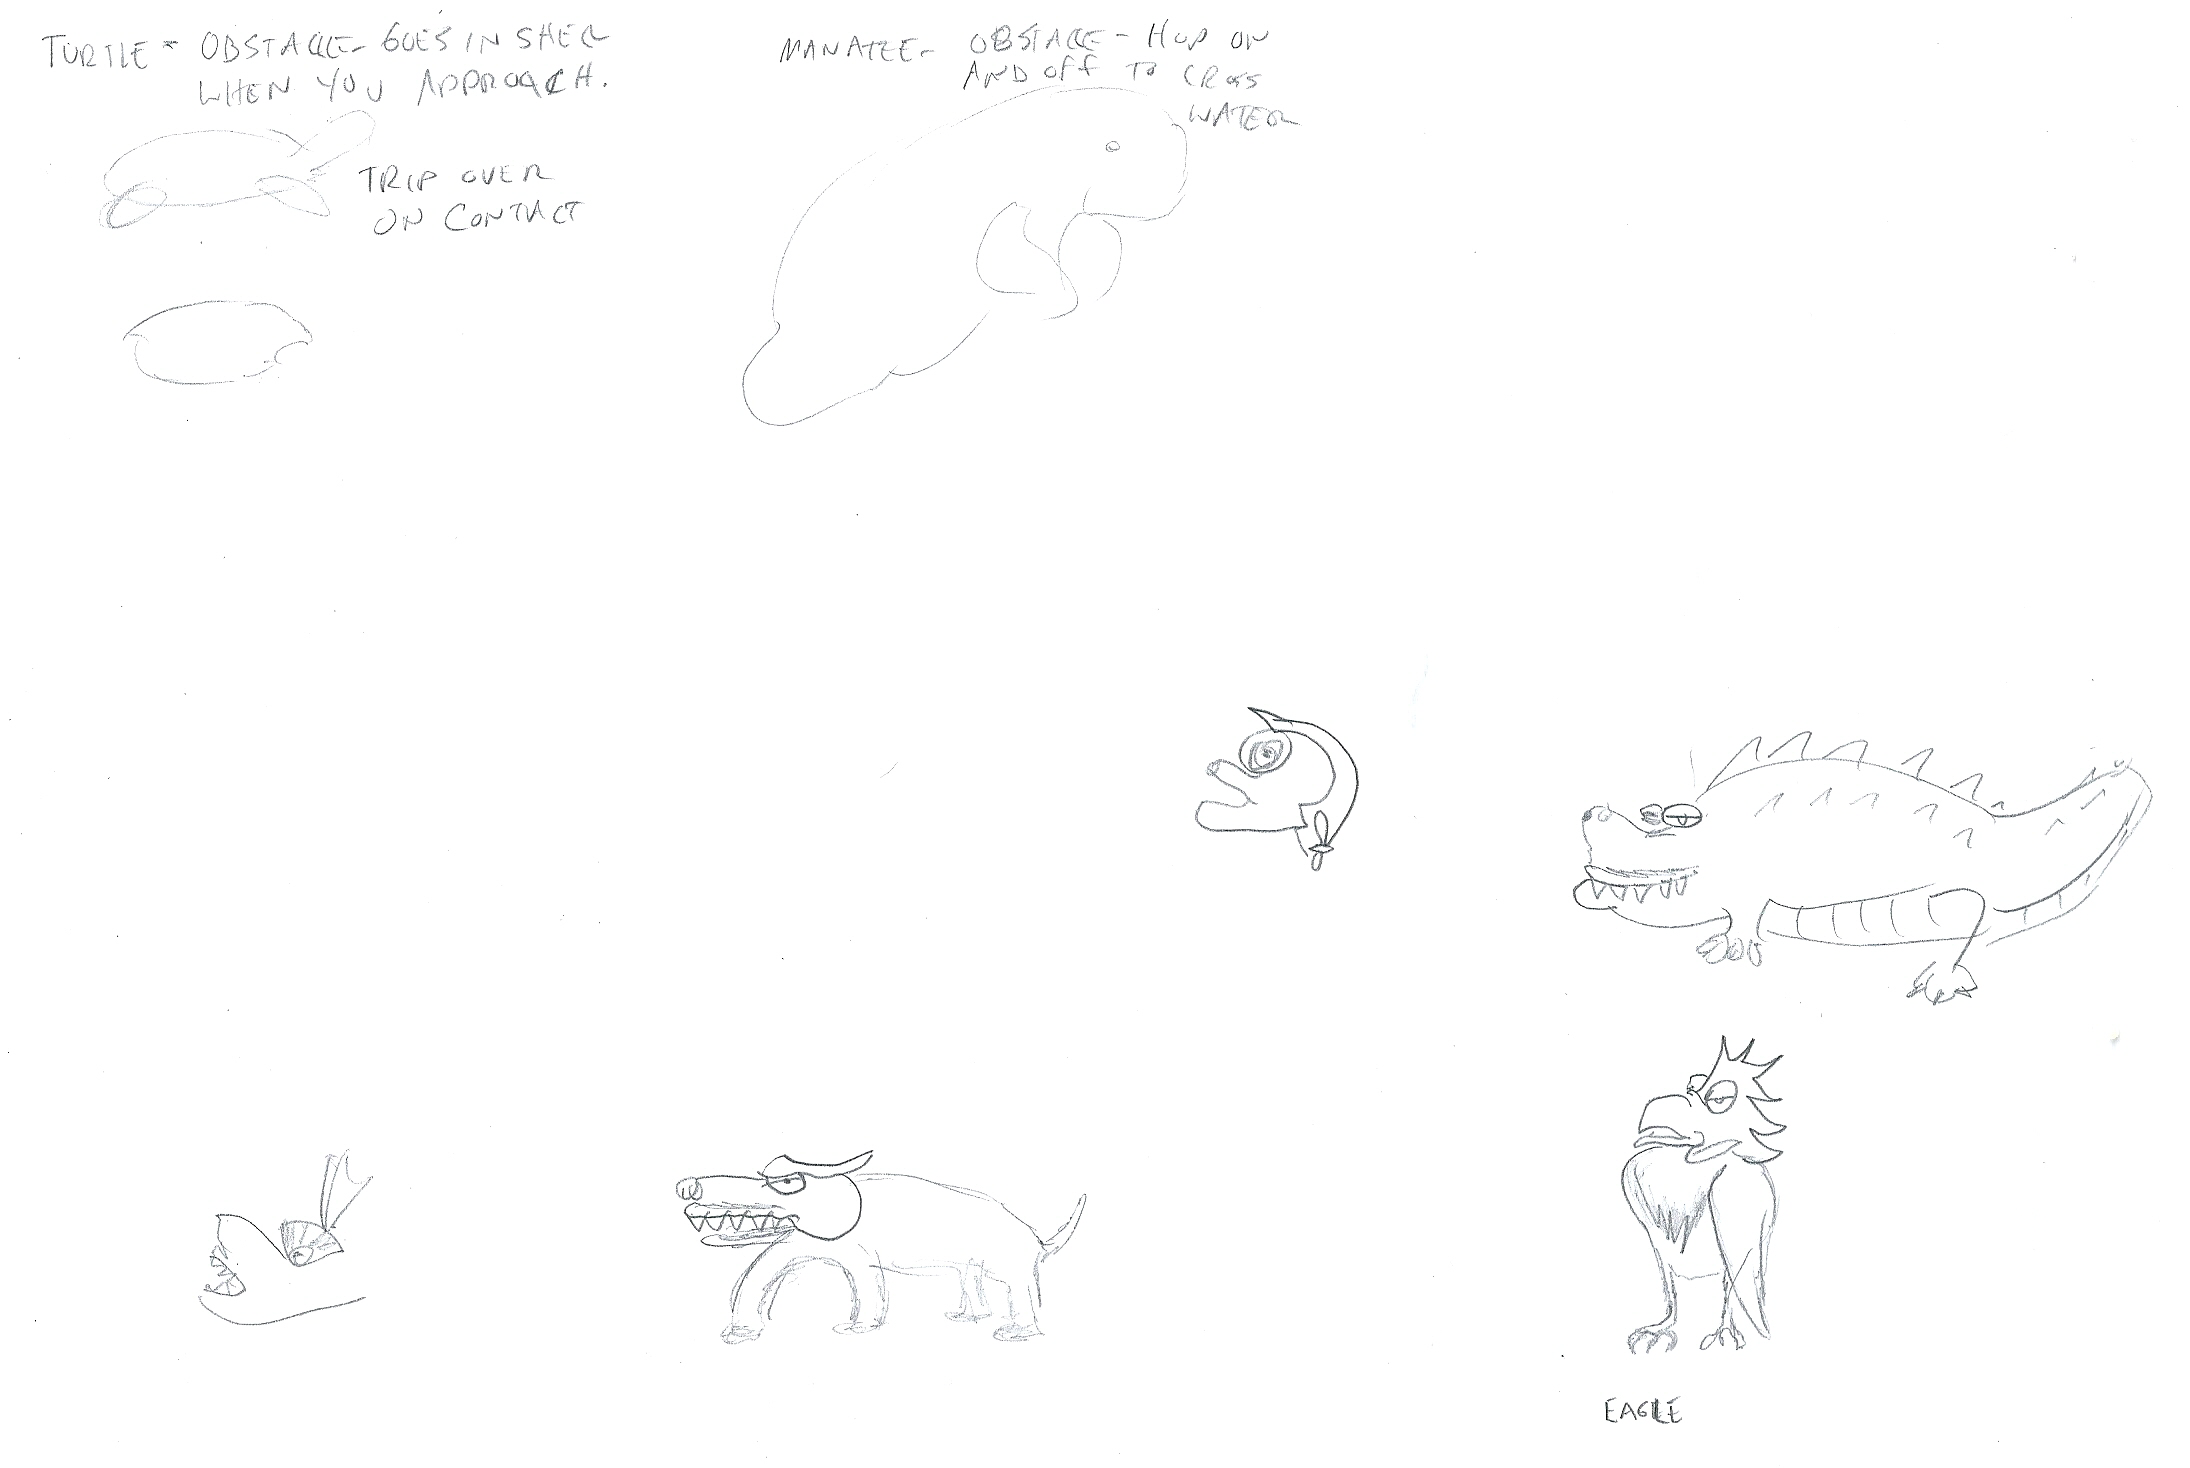 TURTLE - OBSTACLE - GOES IN SHELL
WHEN YOU APPROACH.
TRIP OVER
ON CONTACT
MANATEE - OBSTACLE - HOP ON
AND OFF TO CROSS
WATER
EAGLE